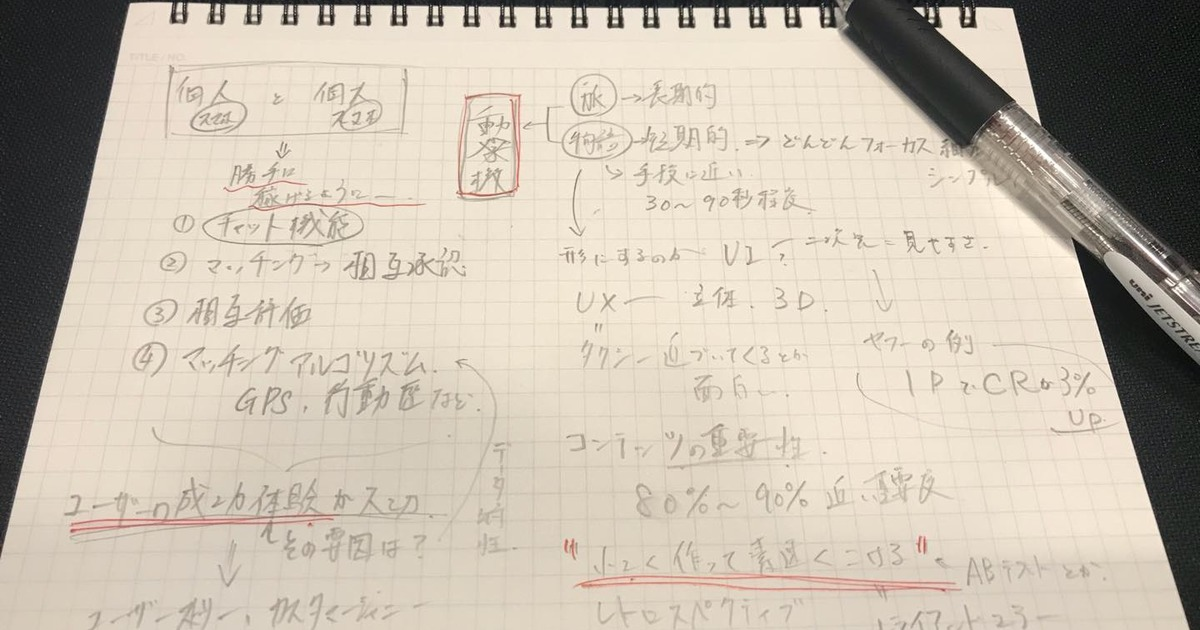 TITLE / NO.
個人 と 個人
スマホ スマホ
勝手に
稼げるように
① チャット機能
② マッチング→相互承認
③ 相互評価
④ マッチングアルゴリズム.
GPS、行動歴など.
ユーザーの成功体験が
その要因は?
データ
特性.
動
機
旅 →長期的
短期的. ⇒ どんどんフォーカス
シンプル
手段に近い
30〜90秒程度
形にするのが UI 二次元 = 見やすさ.
UX 立体. 3D.
タクシー近づいてくるとか
面白い.
ヤフーの例
1PでCRが3%
UP
コンテンツの重要性.
80%〜90%近い重要度
"小さく作って素速くこける"
ABテストとか.
レトロスペクティブ
トライアンドエラー
uni JETSTRE